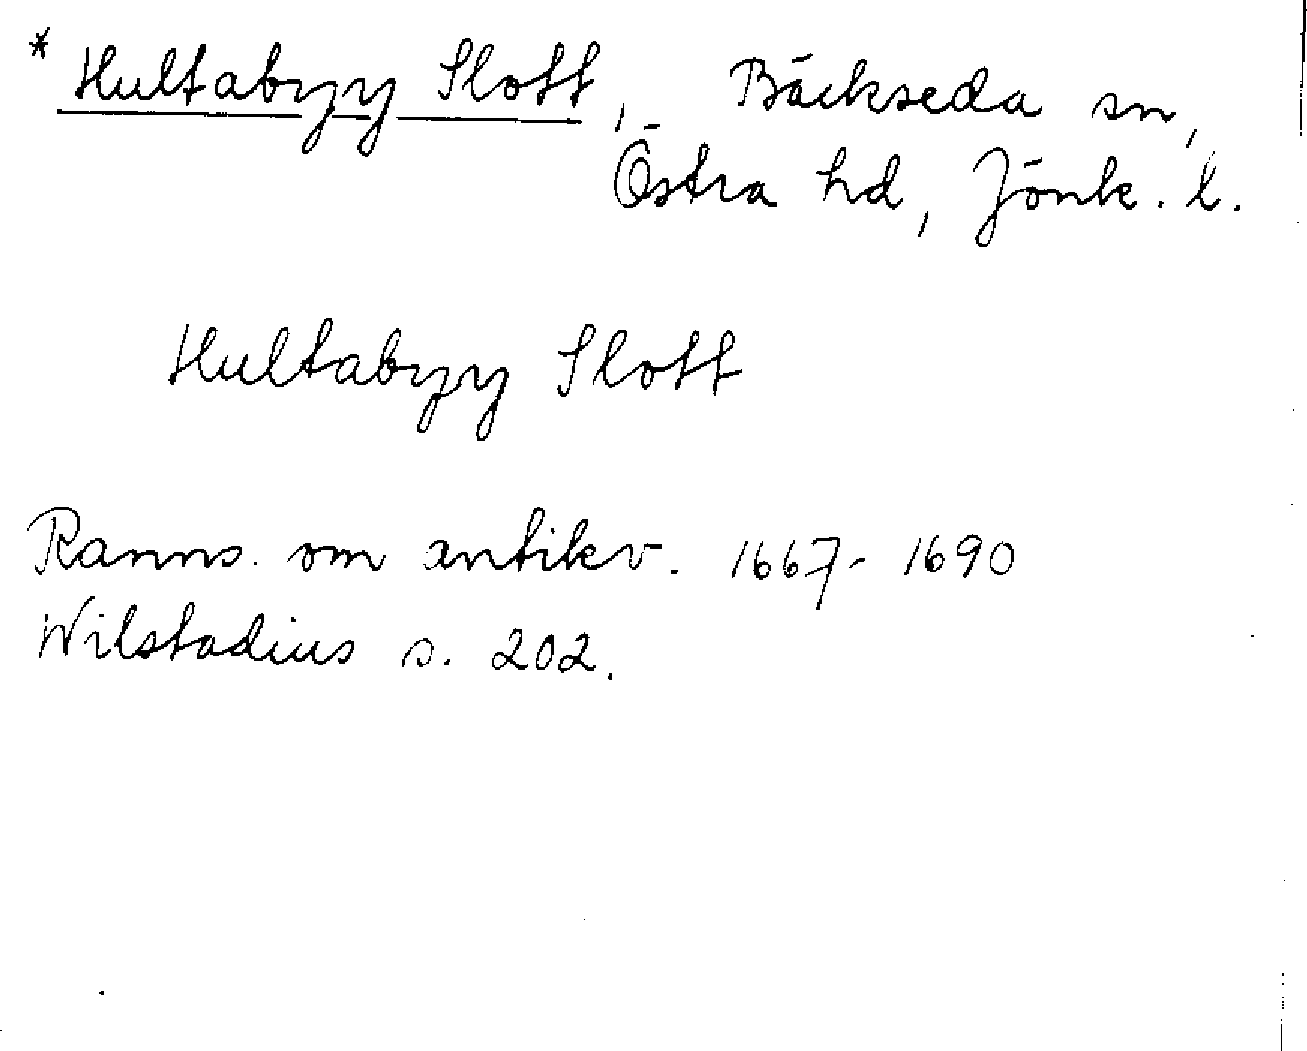 * Hultabyy Slott, Bäckseda sn,
Östra hd, Jönk. l.
Hultabyy Slott
Ranns. om antikv. 1667-1690
Wilstadius s. 202.